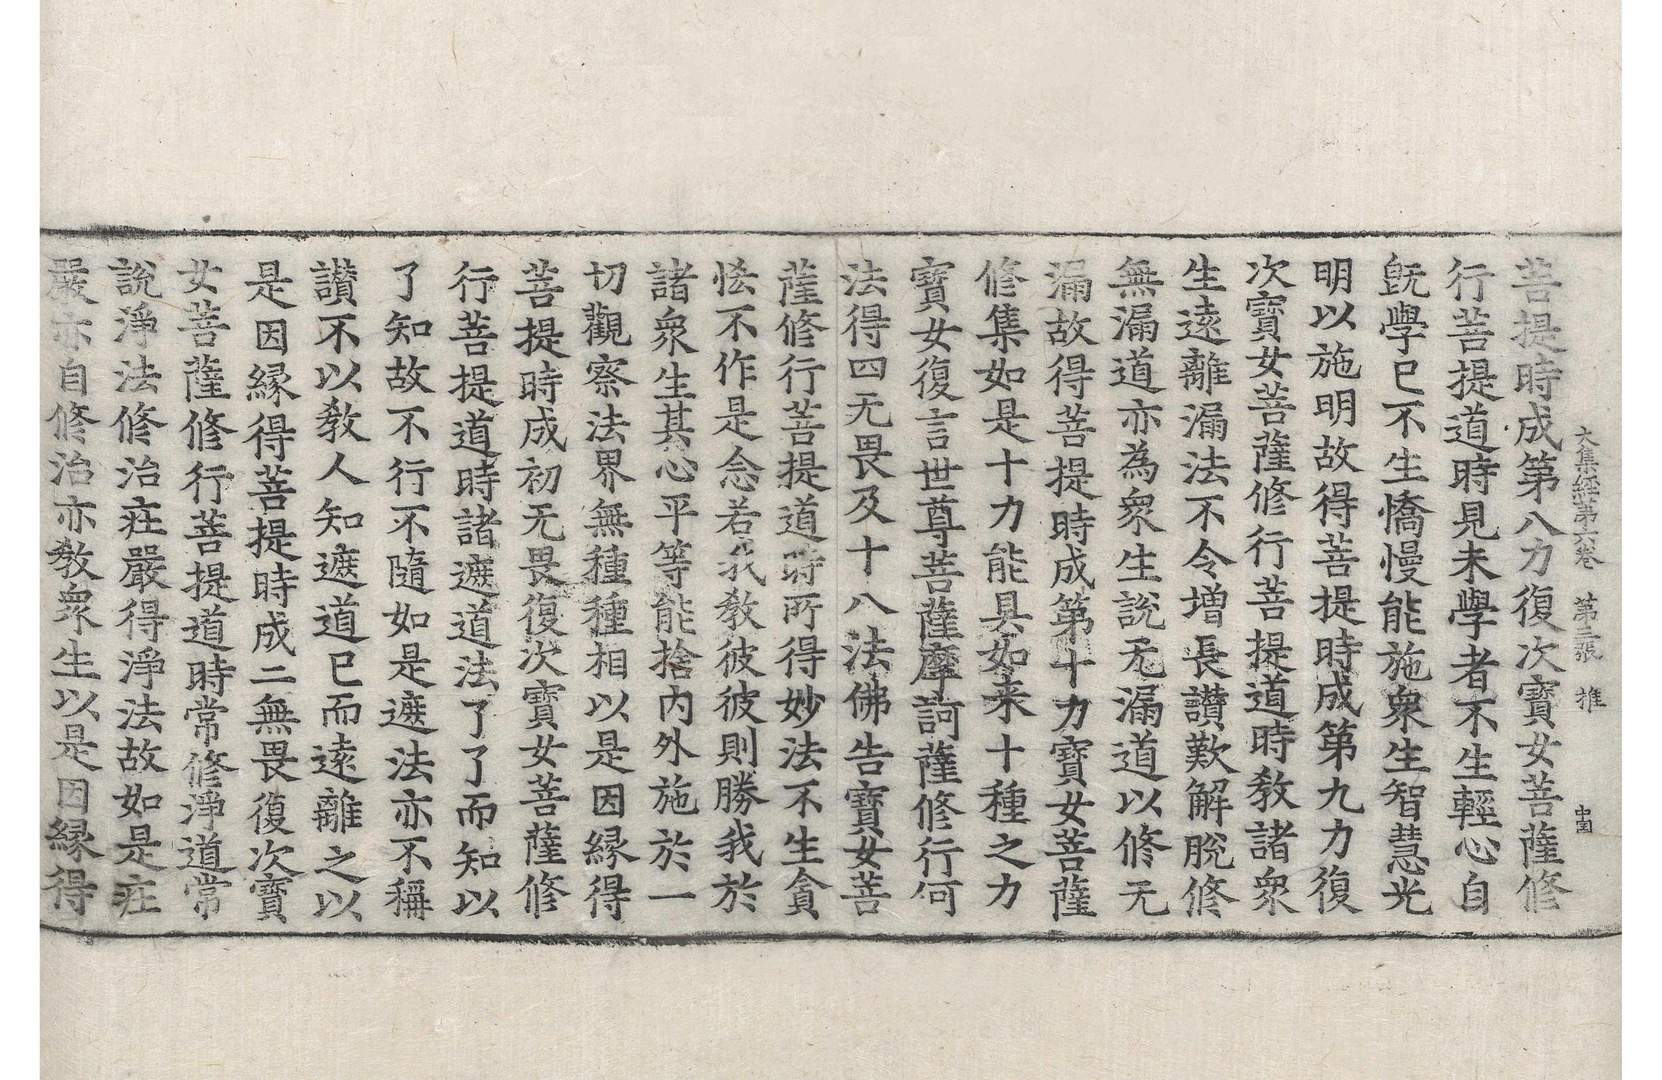 大集經第六卷　第三張　推　中固
菩提時成第八力復次寶女菩薩修
行菩提道時見未學者不生輕心自
旣學已不生憍慢能施衆生智慧光
明以施明故得菩提時成第九力復
次寶女菩薩修行菩提道時敎諸衆
生遠離漏法不令增長讃歎解脫修
無漏道亦為衆生說无漏道以修无
漏故得菩提時成第十力寶女菩薩
修集如是十力能具如来十種之力
寶女復言世尊菩薩摩訶薩修行何
法得四无畏及十八法佛告寶女菩
薩修行菩提道時所得妙法不生貪
恡不作是念若我敎彼彼則勝我於
諸衆生其心平等能捨内外施於一
切觀察法界無種種相以是因縁得
菩提時成初无畏復次寶女菩薩修
行菩提道時諸遮道法了了而知以
了知故不行不隨如是遮法亦不稱
讃不以敎人知遮道已而遠離之以
是因縁得菩提時成二無畏復次寶
女菩薩修行菩提道時常修淨道常
說淨法修治莊嚴得淨法故如是莊
嚴亦自修治亦敎衆生以是因縁得